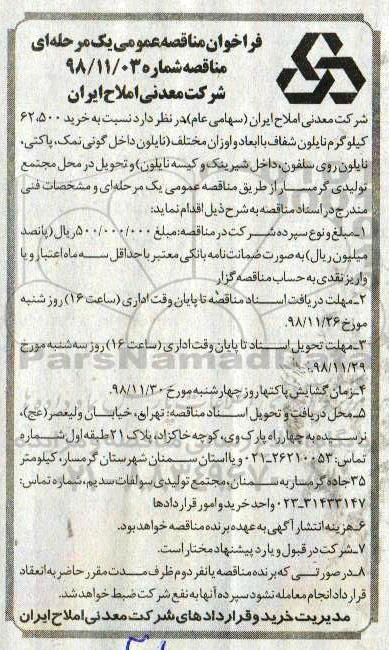 فراخوان مناقصه عمومی یک مرحله‌ای
مناقصه شماره ۹۸/۱۱/۰۳
شرکت معدنی املاح ایران
شرکت معدنی املاح ایران (سهامی عام) در نظر دارد نسبت به خرید ۶۲,۵۰۰
کیلوگرم نایلون شفاف با ابعاد و اوزان مختلف (نایلون داخل گونی نمک، پاکتی،
نایلون روی سلفون، داخل شیرینگ و کیسه نایلون) و تحویل در محل مجتمع
تولیدی گرمسار از طریق مناقصه عمومی یک مرحله‌ای و مشخصات فنی
مندرج در اسناد مناقصه به شرح ذیل اقدام نماید:
۱ـ مبلغ و نوع سپرده شرکت در مناقصه: مبلغ ۵۰۰/۰۰۰/۰۰۰ ریال (پانصد
میلیون ریال) به صورت ضمانت نامه بانکی معتبر با حداقل سه ماه اعتبار و یا
واریز نقدی به حساب مناقصه گزار
۲ـ مهلت دریافت اسناد مناقصه تا پایان وقت اداری (ساعت ۱۶) روز شنبه
مورخ ۹۸/۱۱/۲۶.
۳ـ مهلت تحویل اسناد تا پایان وقت اداری (ساعت ۱۶) روز سه شنبه مورخ
۹۸/۱۱/۲۹.
۴ـ زمان گشایش پاکتها روز چهارشنبه مورخ ۹۸/۱۱/۳۰.
۵ـ محل دریافت و تحویل اسناد مناقصه: تهران، خیابان ولیعصر (عج)،
نرسیده به چهارراه پارک وی، کوچه خاکزاد، پلاک ۲۱ طبقه اول شماره
تماس: ۲۶۲۱۰۰۵۳-۰۲۱ و یا استان سمنان شهرستان گرمسار، کیلومتر
۳۵ جاده گرمسار به سمنان، مجتمع تولیدی سولفات سدیم، شماره تماس:
۳۱۴۳۳۱۴۷-۰۲۳ واحد خرید و امور قراردادها
۶ـ هزینه انتشار آگهی به عهده برنده مناقصه خواهد بود.
۷ـ شرکت در قبول و یا رد پیشنهاد مختار است.
۸ـ در صورتی که برنده مناقصه یا نفر دوم ظرف مدت مقرر حاضر به انعقاد
قرارداد انجام معامله نشود سپرده آنها به نفع شرکت ضبط خواهد شد.
مدیریت خرید و قراردادهای شرکت معدنی املاح ایران
ParsNamadData